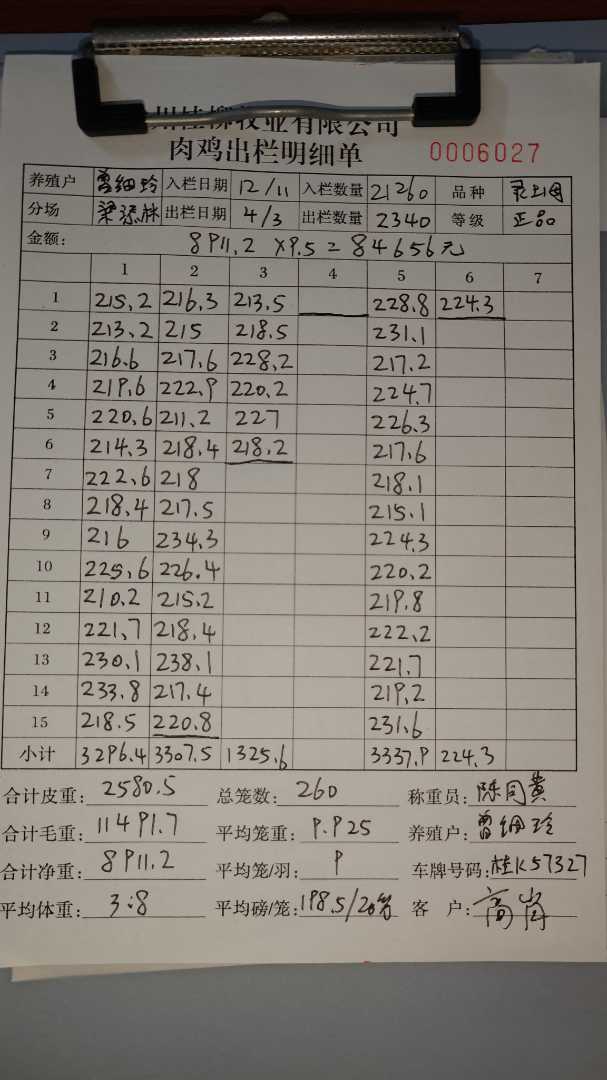 桂柳牧业有限公司
肉鸡出栏明细单 0006027
养殖户 曾细玲 入栏日期 12/11 入栏数量 21260 品种
分场 出栏日期 4/3 出栏数量 2340 等级 正品
金额: 8911.2 ×9.5=84656元
1 2 3 4 5 6 7
1 215.2 216.3 213.5 228.8 224.3
2 213.2 215 218.5 231.1
3 216.6 217.6 228.2 217.2
4 219.6 222.9 220.2 224.7
5 220.6 211.2 227 226.3
6 214.3 218.4 218.2 217.6
7 222.6 218 218.1
8 218.4 217.5 215.1
9 216 234.3 224.3
10 225.6 226.4 220.2
11 210.2 215.2 219.8
12 221.7 218.4 222.2
13 230.1 238.1 221.7
14 233.8 217.4 219.2
15 218.5 220.8 231.6
小计 3296.4 3307.5 1325.6 3337.9 224.3
合计皮重: 2580.5 总笼数: 260 称重员: 陈同黄
合计毛重: 11491.7 平均笼重: 9.925 养殖户: 曾细玲
合计净重: 8911.2 平均笼/羽: 9 车牌号码: 桂K57327
平均体重: 3:8 平均磅/笼: 198.5/20 客 户: 高岗